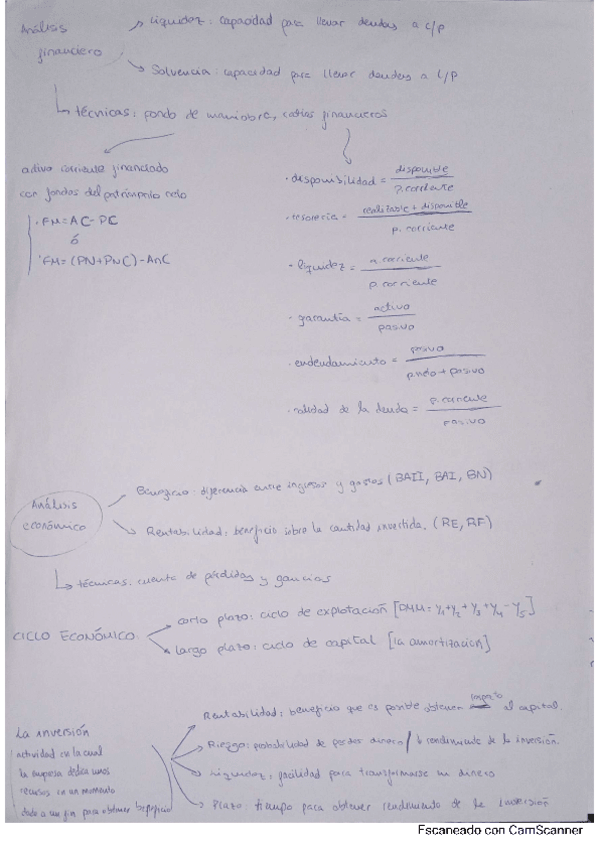 Análisis financiero
→ Liquidez: capacidad para llevar deudas a c/p
→ Solvencia: capacidad para llevar deudas a L/p
↳ técnicas: fondo de maniobra, ratios financieros
activo corriente financiado
con fondos del patrimonio neto
· FM = AC - PC
ó
· FM = (PN + PNC) - AnC
· disponibilidad = disponible / p. corriente
· tesorería = realizable + disponible / p. corriente
· liquidez = a. corriente / p. corriente
· garantía = activo / pasivo
· endeudamiento = pasivo / p. neto + pasivo
· calidad de la deuda = p. corriente / pasivo
Análisis económico
→ Beneficio: diferencia entre ingresos y gastos (BAII, BAI, BN)
→ Rentabilidad: beneficio sobre la cantidad invertida. (RE, RF)
↳ técnicas: cuenta de pérdidas y gancias
CICLO ECONÓMICO
→ corto plazo: ciclo de explotación [PMM = Y1 + Y2 + Y3 + Y4 - Y5]
→ largo plazo: ciclo de capital [la amortización]
La inversión
actividad en la cual
la empresa dedica unos
recursos en un momento
dado a un fin para obtener beneficio
→ Rentabilidad: beneficio que es posible obtener respecto al capital.
→ Riesgo: probabilidad de perder dinero / rendimiento de la inversión.
→ Liquidez: facilidad para transformarse en dinero
→ Plazo: tiempo para obtener rendimiento de la inversión
Escaneado con CamScanner